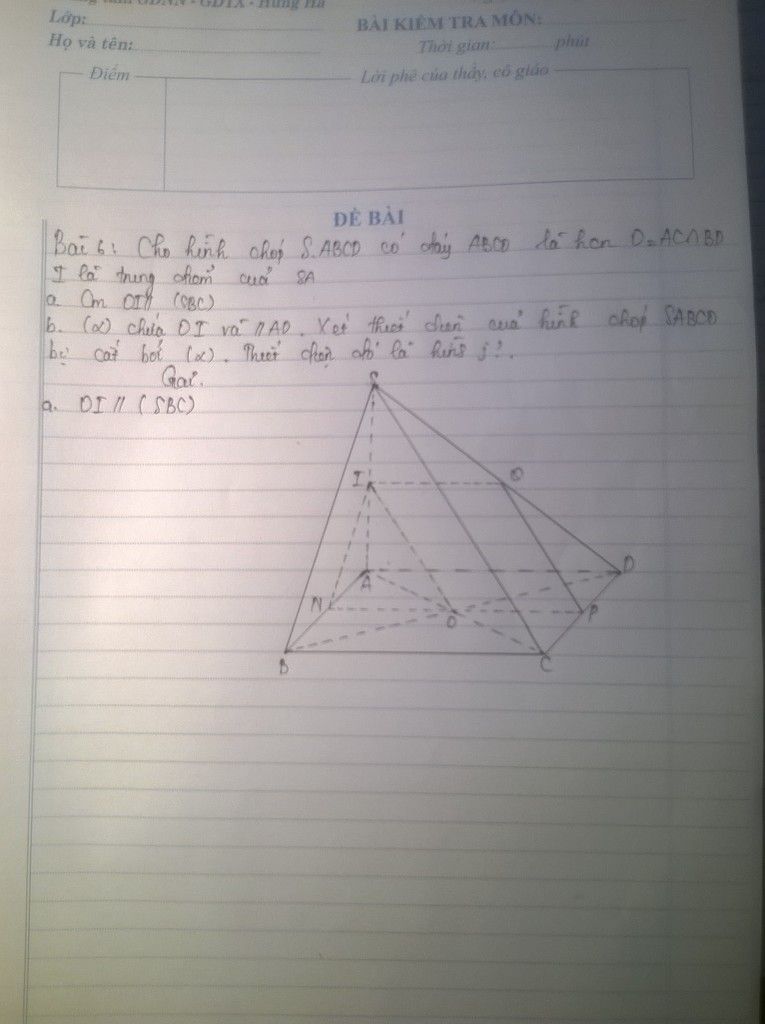 GDNN - GDTX - Hưng Hà
Lớp:
BÀI KIỂM TRA MÔN:
Họ và tên:
Thời gian: phút
Điểm
Lời phê của thầy, cô giáo
ĐỀ BÀI
Bài 6: Cho hình chóp S.ABCD có đáy ABCD là hbh O=AC∩BD
I là trung điểm của SA
a. Cm OI // (SBC)
b. (α) chứa OI và // AD. Xét thiết diện của hình chóp SABCD
bị cắt bởi (α). Thiết diện đó là hình j?.
Giải.
a. OI // (SBC)
S
I
Q
A
D
N
O
P
B
C